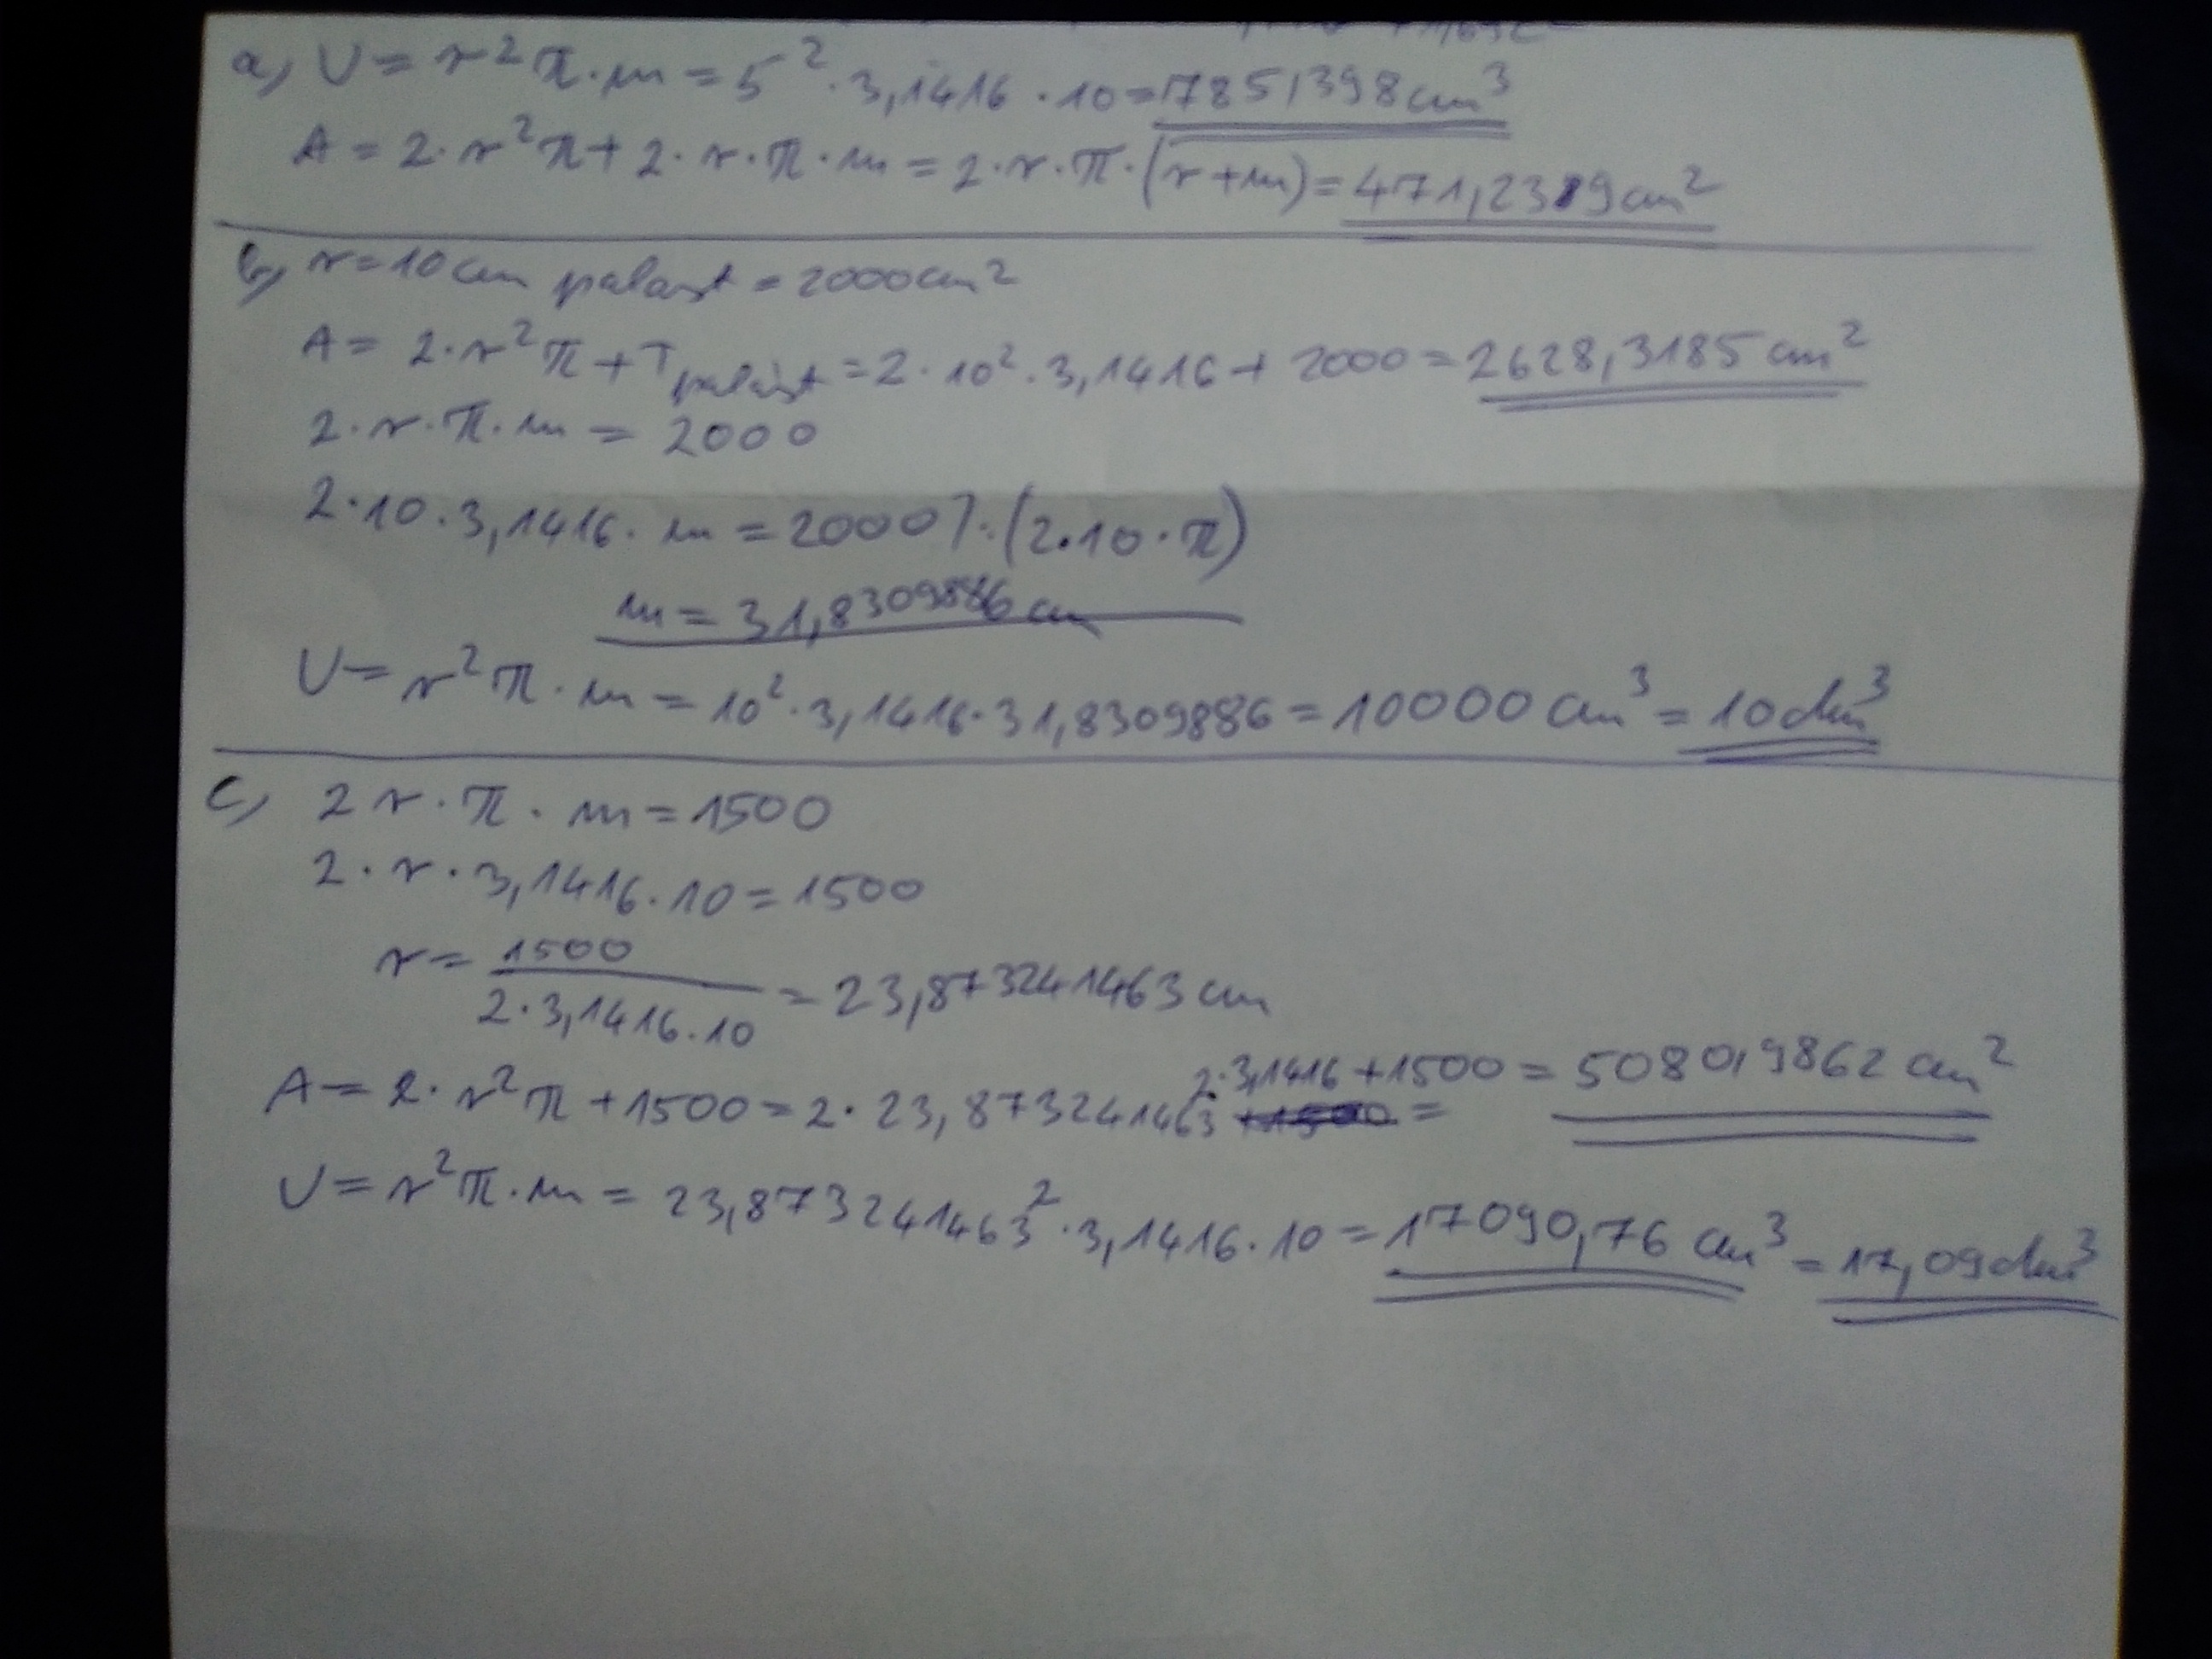 a, V = r² π · m = 5² · 3,1416 · 10 = 785,398 cm³
A = 2 · r² π + 2 · r · π · m = 2 · r · π · (r + m) = 471,2389 cm²
b, r = 10 cm palást = 2000 cm²
A = 2 · r² π + T palást = 2 · 10² · 3,1416 + 2000 = 2628,3185 cm²
2 · r · π · m = 2000
2 · 10 · 3,1416 · m = 2000 /: (2 · 10 · π)
m = 31,8309886 cm
V = r² π · m = 10² · 3,1416 · 31,8309886 = 10000 cm³ = 10 dm³
c, 2 r · π · m = 1500
2 · r · 3,1416 · 10 = 1500
r = 1500 / 2 · 3,1416 · 10 = 23,873241463 cm
A = 2 · r² π + 1500 = 2 · 23,873241463² · 3,1416 + 1500 = 5080,9862 cm²
V = r² π · m = 23,873241463² · 3,1416 · 10 = 17090,76 cm³ = 17,09 dm³